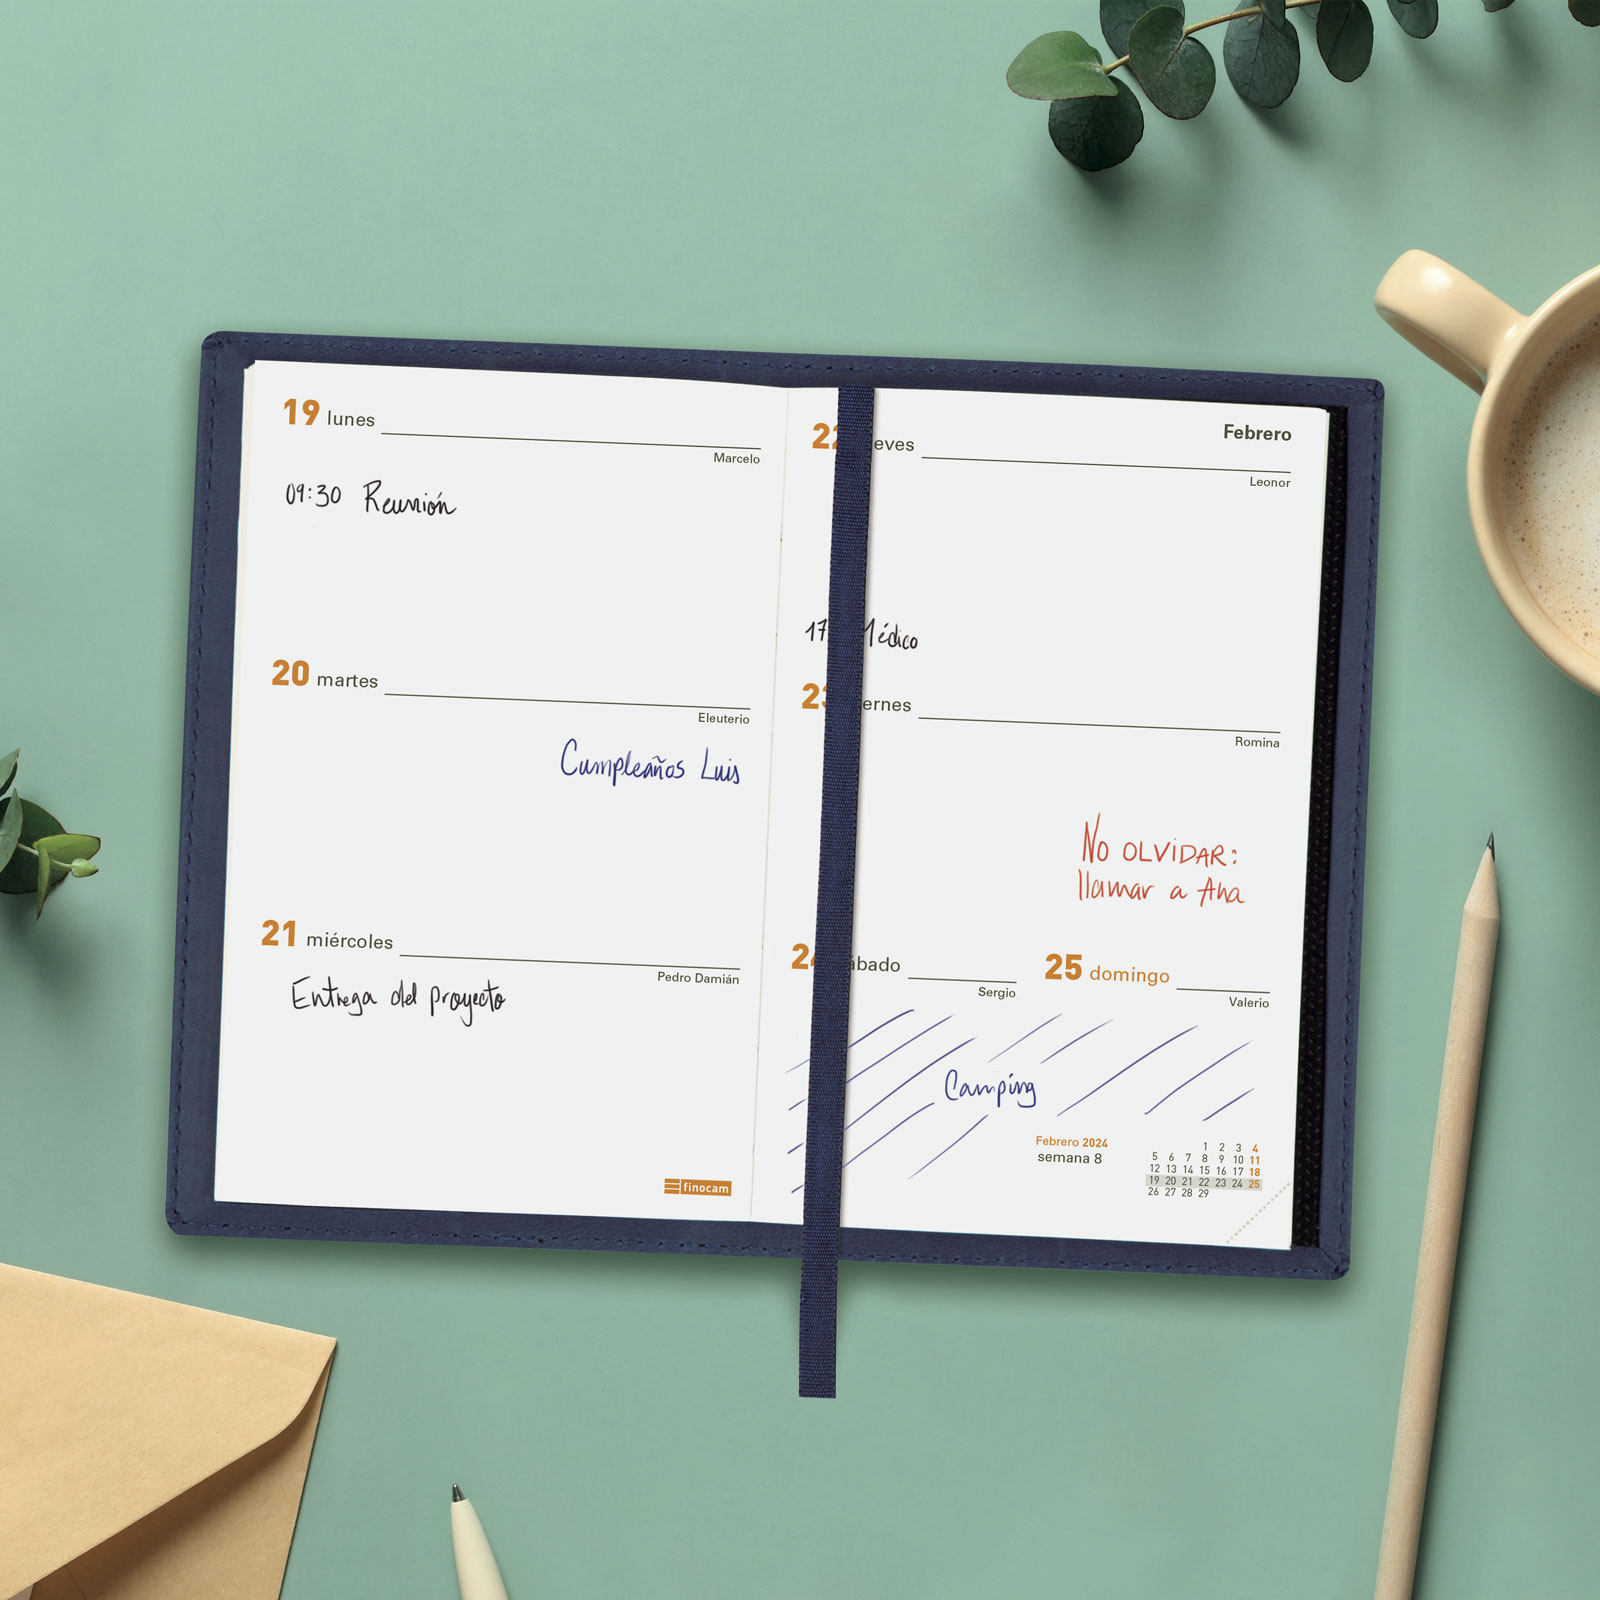 19 lunes
Marcelo
09:30 Reunión
20 martes
Eleuterio
Cumpleaños Luis
21 miércoles
Pedro Damián
Entrega del proyecto
finocam
Febrero
22 eves
Leonor
17 Médico
23 ernes
Romina
No OLVIDAR:
llamar a Ana
24 ábado
Sergio
25 domingo
Valerio
Camping
Febrero 2024
semana 8
1 2 3 4
5 6 7 8 9 10 11
12 13 14 15 16 17 18
19 20 21 22 23 24 25
26 27 28 29